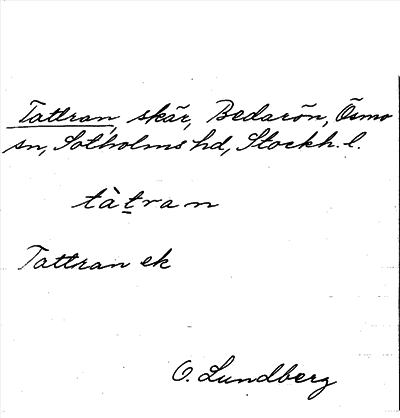 Tattran, skär, Bedarön, Ösmo
sn, Sotholms hd, Stockh. l.
tàt̲ran
Tattran ek
O. Lundberg